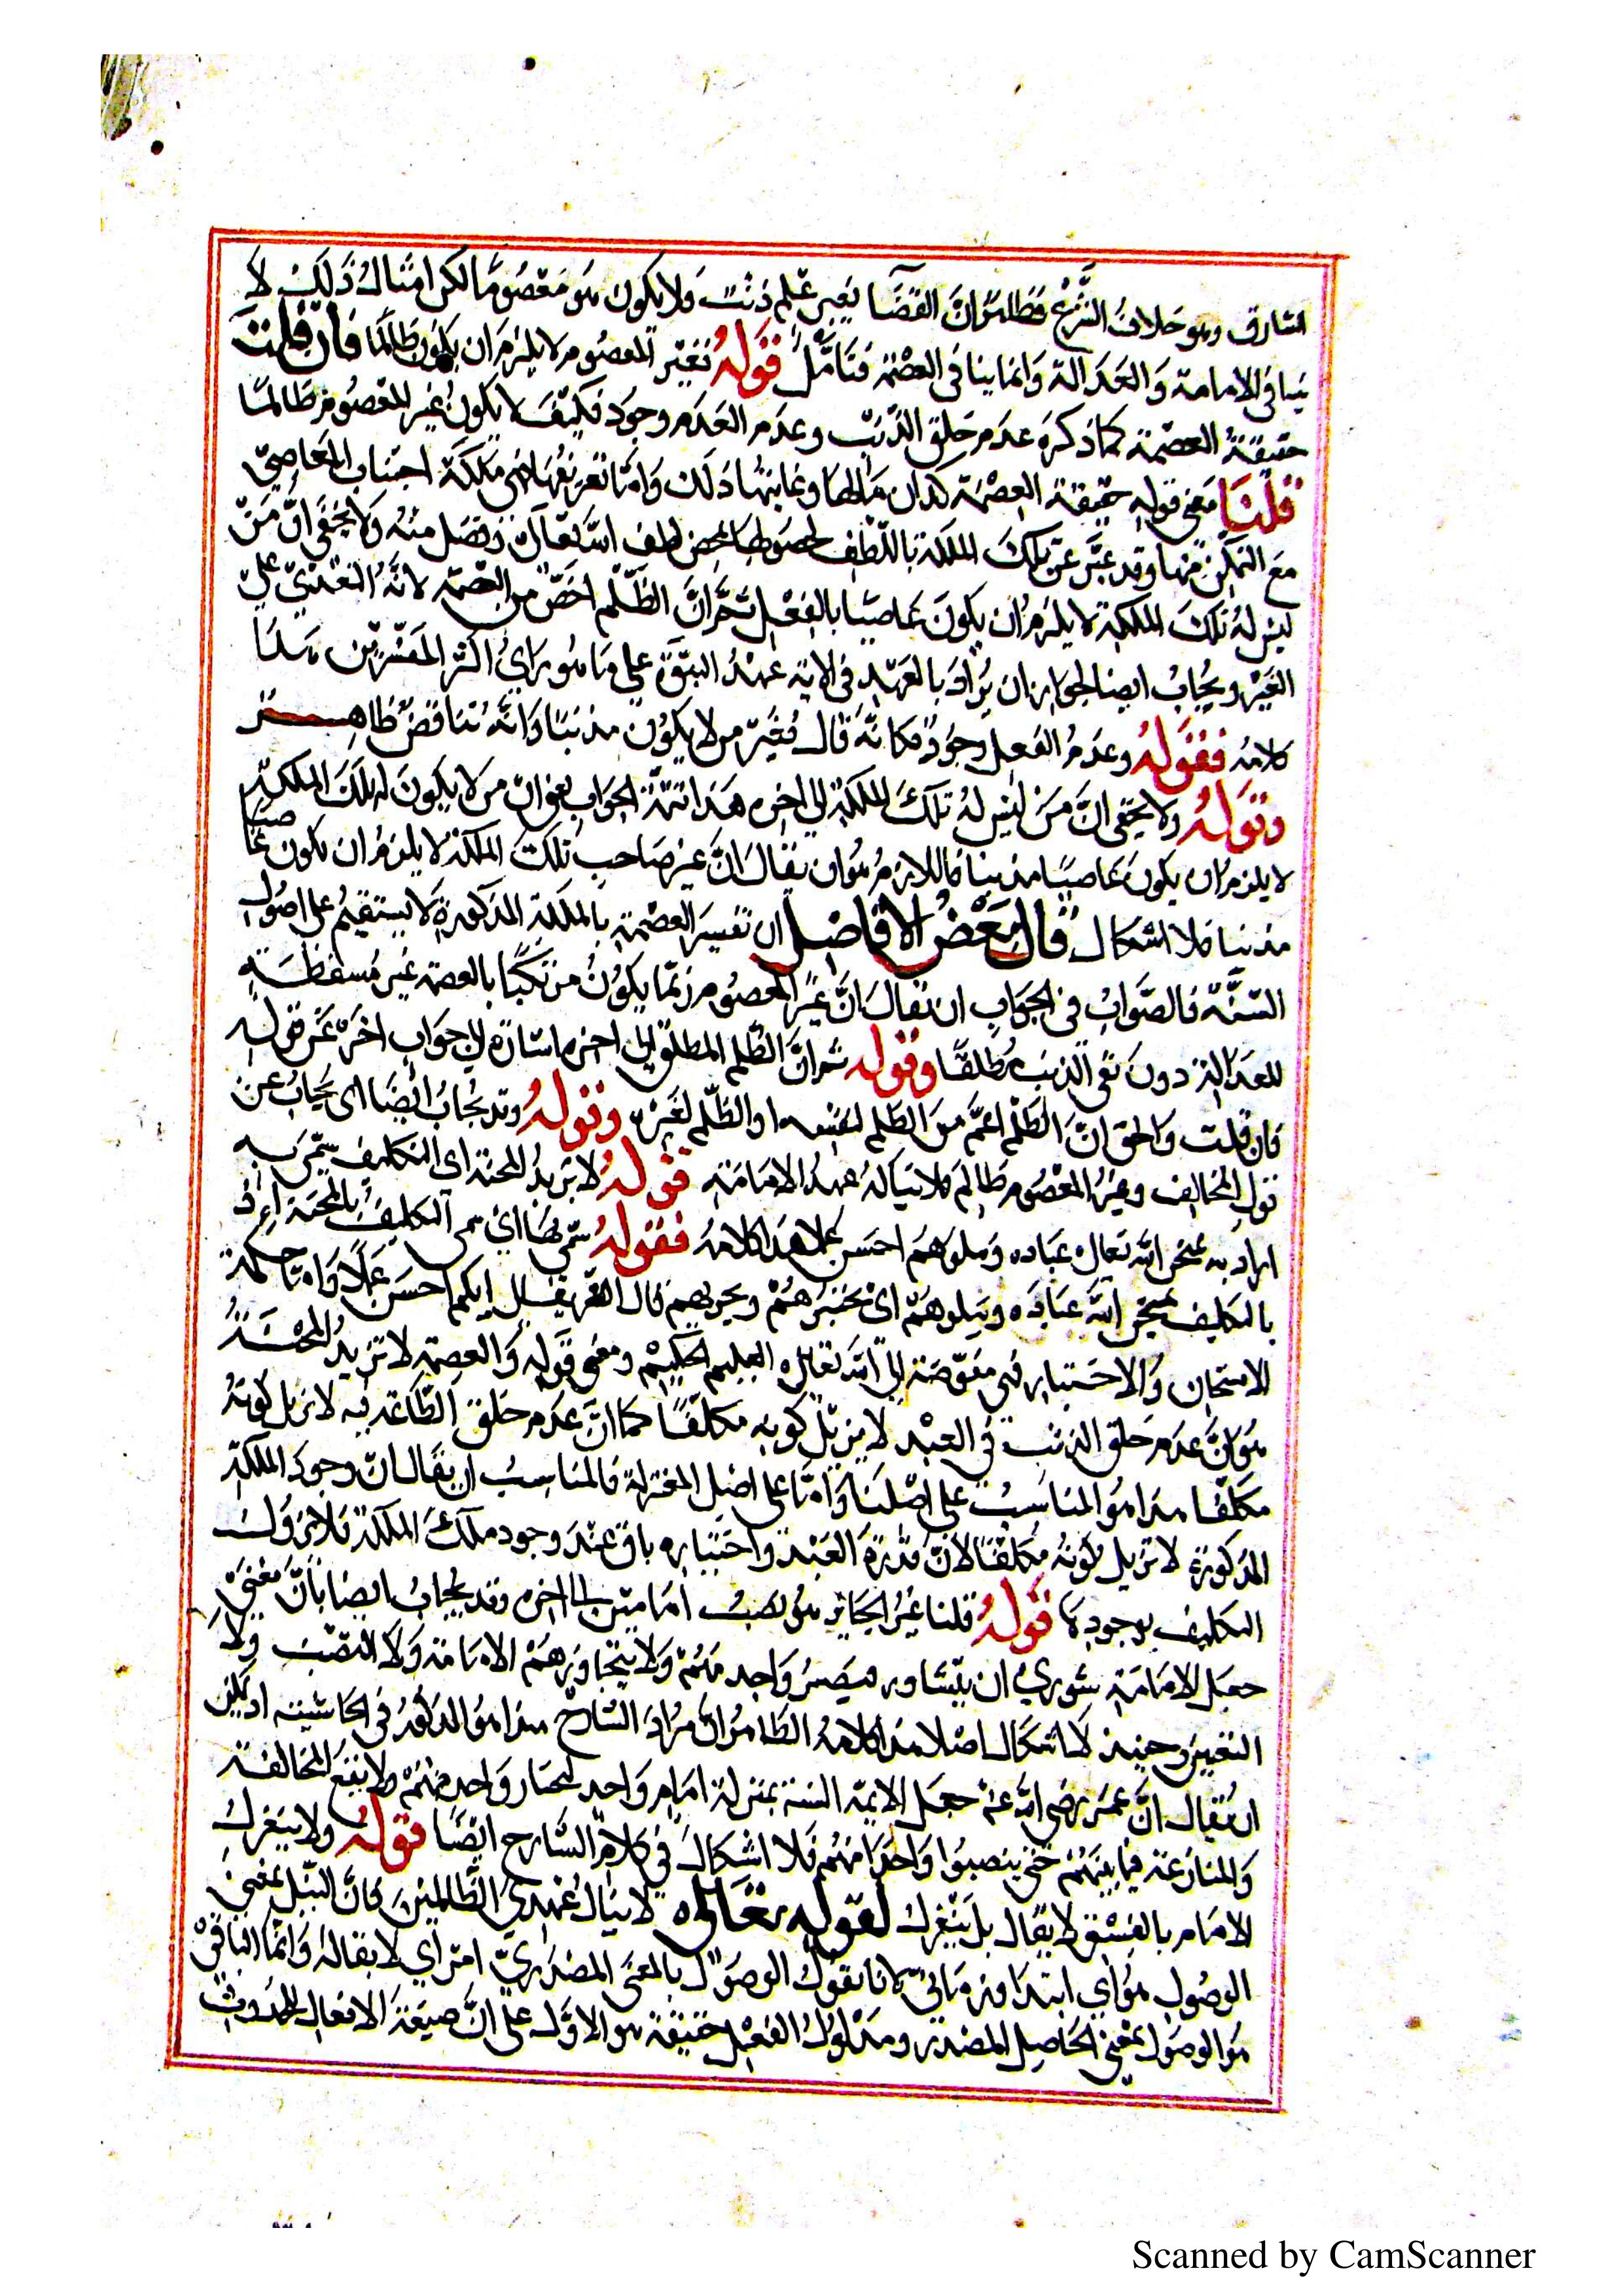 السارق وهو خلاف الشرع فظهر ان القضا بغير علم ذنب ولا يكون هو معصوما لكن امثال ذلك لا
ينافي الامامة والعدالة وانما ينافي العصمة فتامل قوله فغير المعصوم لا يلزم ان يكون ظالما فان قلت
حقيقة العصمة كما ذكره عدم خلق الذنب وعدم العدم وجود فكيف لا يكون غير المعصوم ظالما
قلنا معنى قوله حقيقة العصمة كذا ان مالها وغايتها ذلك واما تعريفها فهي ملكة اجتناب المعاصي
مع التمكن منها وقد عبر عن تلك الملكة باللطف لحصولها بمحض لطف الله تعالى وفضل منه ولا يخفى ان من
ليس له تلك الملكة لا يلزم ان يكون عاصيا بالفعل ثم ان الظلم اخص من العصمة لانه التعدي على
الغير ويجاب ايضا لجواز ان يراد بالعهد في الاية عهد النبوة على ما هو راي اكثر المفسرين هذا
كلامه فقوله وعدم الفعل وجود فكانه قال فغير من لا يكون مذنبا وانه تناقض ظاهر
وقوله ولا يخفى ان من ليس له تلك الملكة الى اخره هذا تتمة الجواب يعني ان من لا يكون له تلك الملكة
لا يلزم ان يكون عاصيا مذنبا فاللازم هو ان يقال ان غير صاحب تلك الملكة لا يلزم ان يكون عاصيا
مذنبا فلا اشكال قال بعض الافاضل ان تفسير العصمة بالملكة المذكورة لا يستقيم على اصول
السنة فالصواب في الجواب ان يقال ان غير المعصوم ربما يكون مرتكبا بالعصمة غير مسقطة
للعدالة دون نفي الذنب مطلقا وقوله ثم ان الظلم المطلق الى اخره اشارة الى جواب اخر عن قوله
فان قلت والحق ان الظلم اعم من الظلم لنفسه او الظلم لغيره وقوله وقد يجاب ايضا اى يجاب عن
قول المخالف وغير المعصوم ظالم فلا يناله عهد الامامة قوله لا تزيد المحنة اى التكليف سمي به
اراد به يمتحن الله تعالى عباده ويبلوهم احسن عملا هذا كلامه فقوله سمي بها اى سمى التكليف بالمحنة اذ
بالتكليف يمتحن الله عباده ويبلوهم اى يختبرهم ويجربهم قال الله تعالى ايكم احسن عملا واما حكمة
الامتحان والاختبار فهي مفوضة الى الله تعالى العليم الحكيم ومعنى قوله والعصمة لا تزيد المحنة
هو ان عدم خلق الذنب في العبد لا يزيل كونه مكلفا كما ان عدم خلق الطاعة فيه لا يزيل كونه
مكلفا هذا هو المناسب على اصلنا واما على اصل المعتزلة فالمناسب ان يقال ان وجود الملكة
المذكورة لا تزيل كونه مكلفا لان قدرة العبد واختياره باق عند وجود ملك الملكة فلا يزول
التكليف بوجودها قوله قلنا غير الجائز هو نصب امامين الى اخره وقد يجاب ايضا بان معنى
جعل الامامة شورى ان يتشاور فينصب واحد منهم ولا يتجاوزهم الامامة ولا النصب ولا
التعيين وحينئذ لا اشكال اصلا هذا كلامه الظاهر ان مراد الشارح هذا هو المذكور في الحاشية او يمكن
ان يقال ان عمر رضي الله عنه جعل الايمة الستة بمنزلة امام واحد ليختار واحد منهم ولا يقع المخالفة
والمنازعة فيما بينهم حتى ينصبوا واحدا منهم فلا اشكال في كلام الشارح ايضا قوله ولا ينعزل
الامام بالفسق لا يقال بل ينعزل لقوله تعالى لا ينال عهدي الظالمين فان النيل بمعنى
الوصول هو اي ابتدا وزماني لانا نقول الوصول بالمعنى المصدري امر اني لا بقا له وانما الباقي
هو الوصول بمعنى الحاصل المصدر ومدلول الفعل حقيقة هو الاول على ان صيغة الافعال للحدوث
Scanned by CamScanner